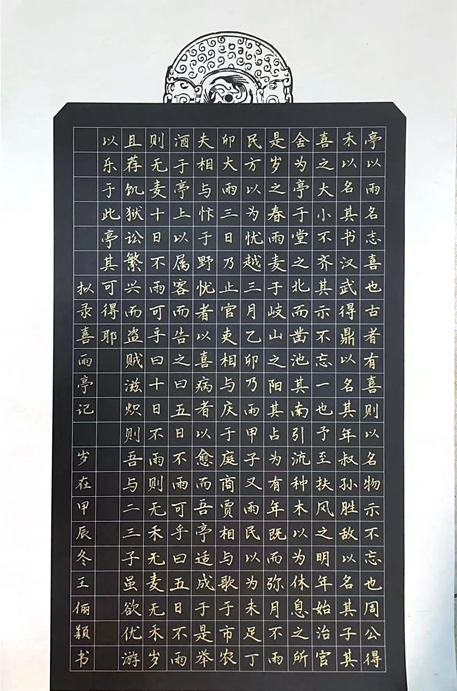 亭以雨名志喜也古者有喜则以名物示不忘也周公得
禾以名其书汉武得鼎以名其年叔孙胜敌以名其子其
喜之大小不齐其示不忘一也予至扶风之明年始治官
舍为亭于堂之北而凿池其南引流种木以为休息之所
是岁之春雨麦于岐山之阳其占为有年既而弥月不雨
民方以为忧越三月乙卯乃雨甲子又雨民以为未足丁
卯大雨三日乃止官吏相与庆于庭商贾相与歌于市农
夫相与忭于野忧者以喜病者以愈而吾亭适成于是举
酒于亭上以属客而告之曰五日不雨可乎曰五日不雨
则无麦十日不雨可乎曰十日不雨则无禾无麦无禾岁
且荐饥狱讼繁兴而盗贼滋炽则吾与二三子虽欲优游
以乐于此亭其可得耶
拟录喜雨亭记 岁在甲辰冬王俪颖书